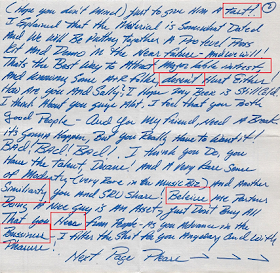 (Hope you don't mind) Just to give Him A Fact!! ②
I Explained that the Material is Somewhat Dated
And we will Be Putting together A Pro level Press
Kit And Demo in the Near Future - And we will
That's the Best way to Attract Major Lable interest,
And Knowing Some A+R folks doesn't Hurt Either.
How Are you And Sally? I Hope My Box is Still Old
I Think About you guys Alot. I feel that you Both
Good People - And you My friend, Need A Break
it's Gonna Happen, But you Really Have to want it!!
Bad! Bad! Bad! I think you Do, you
Have the Talent, Desire, And A Very Rare Sense
of Modesty (Very Rare in the Music Biz) And Another
Similiarity you And Still Share. Beleive Me Partner
Being A Nice Guy is An Asset, Just Don't Buy All
That you Hear From People - As you Advance in the
Bussiness I Filter the Shit the You Anyway And with
Pleasure! Next Page Please